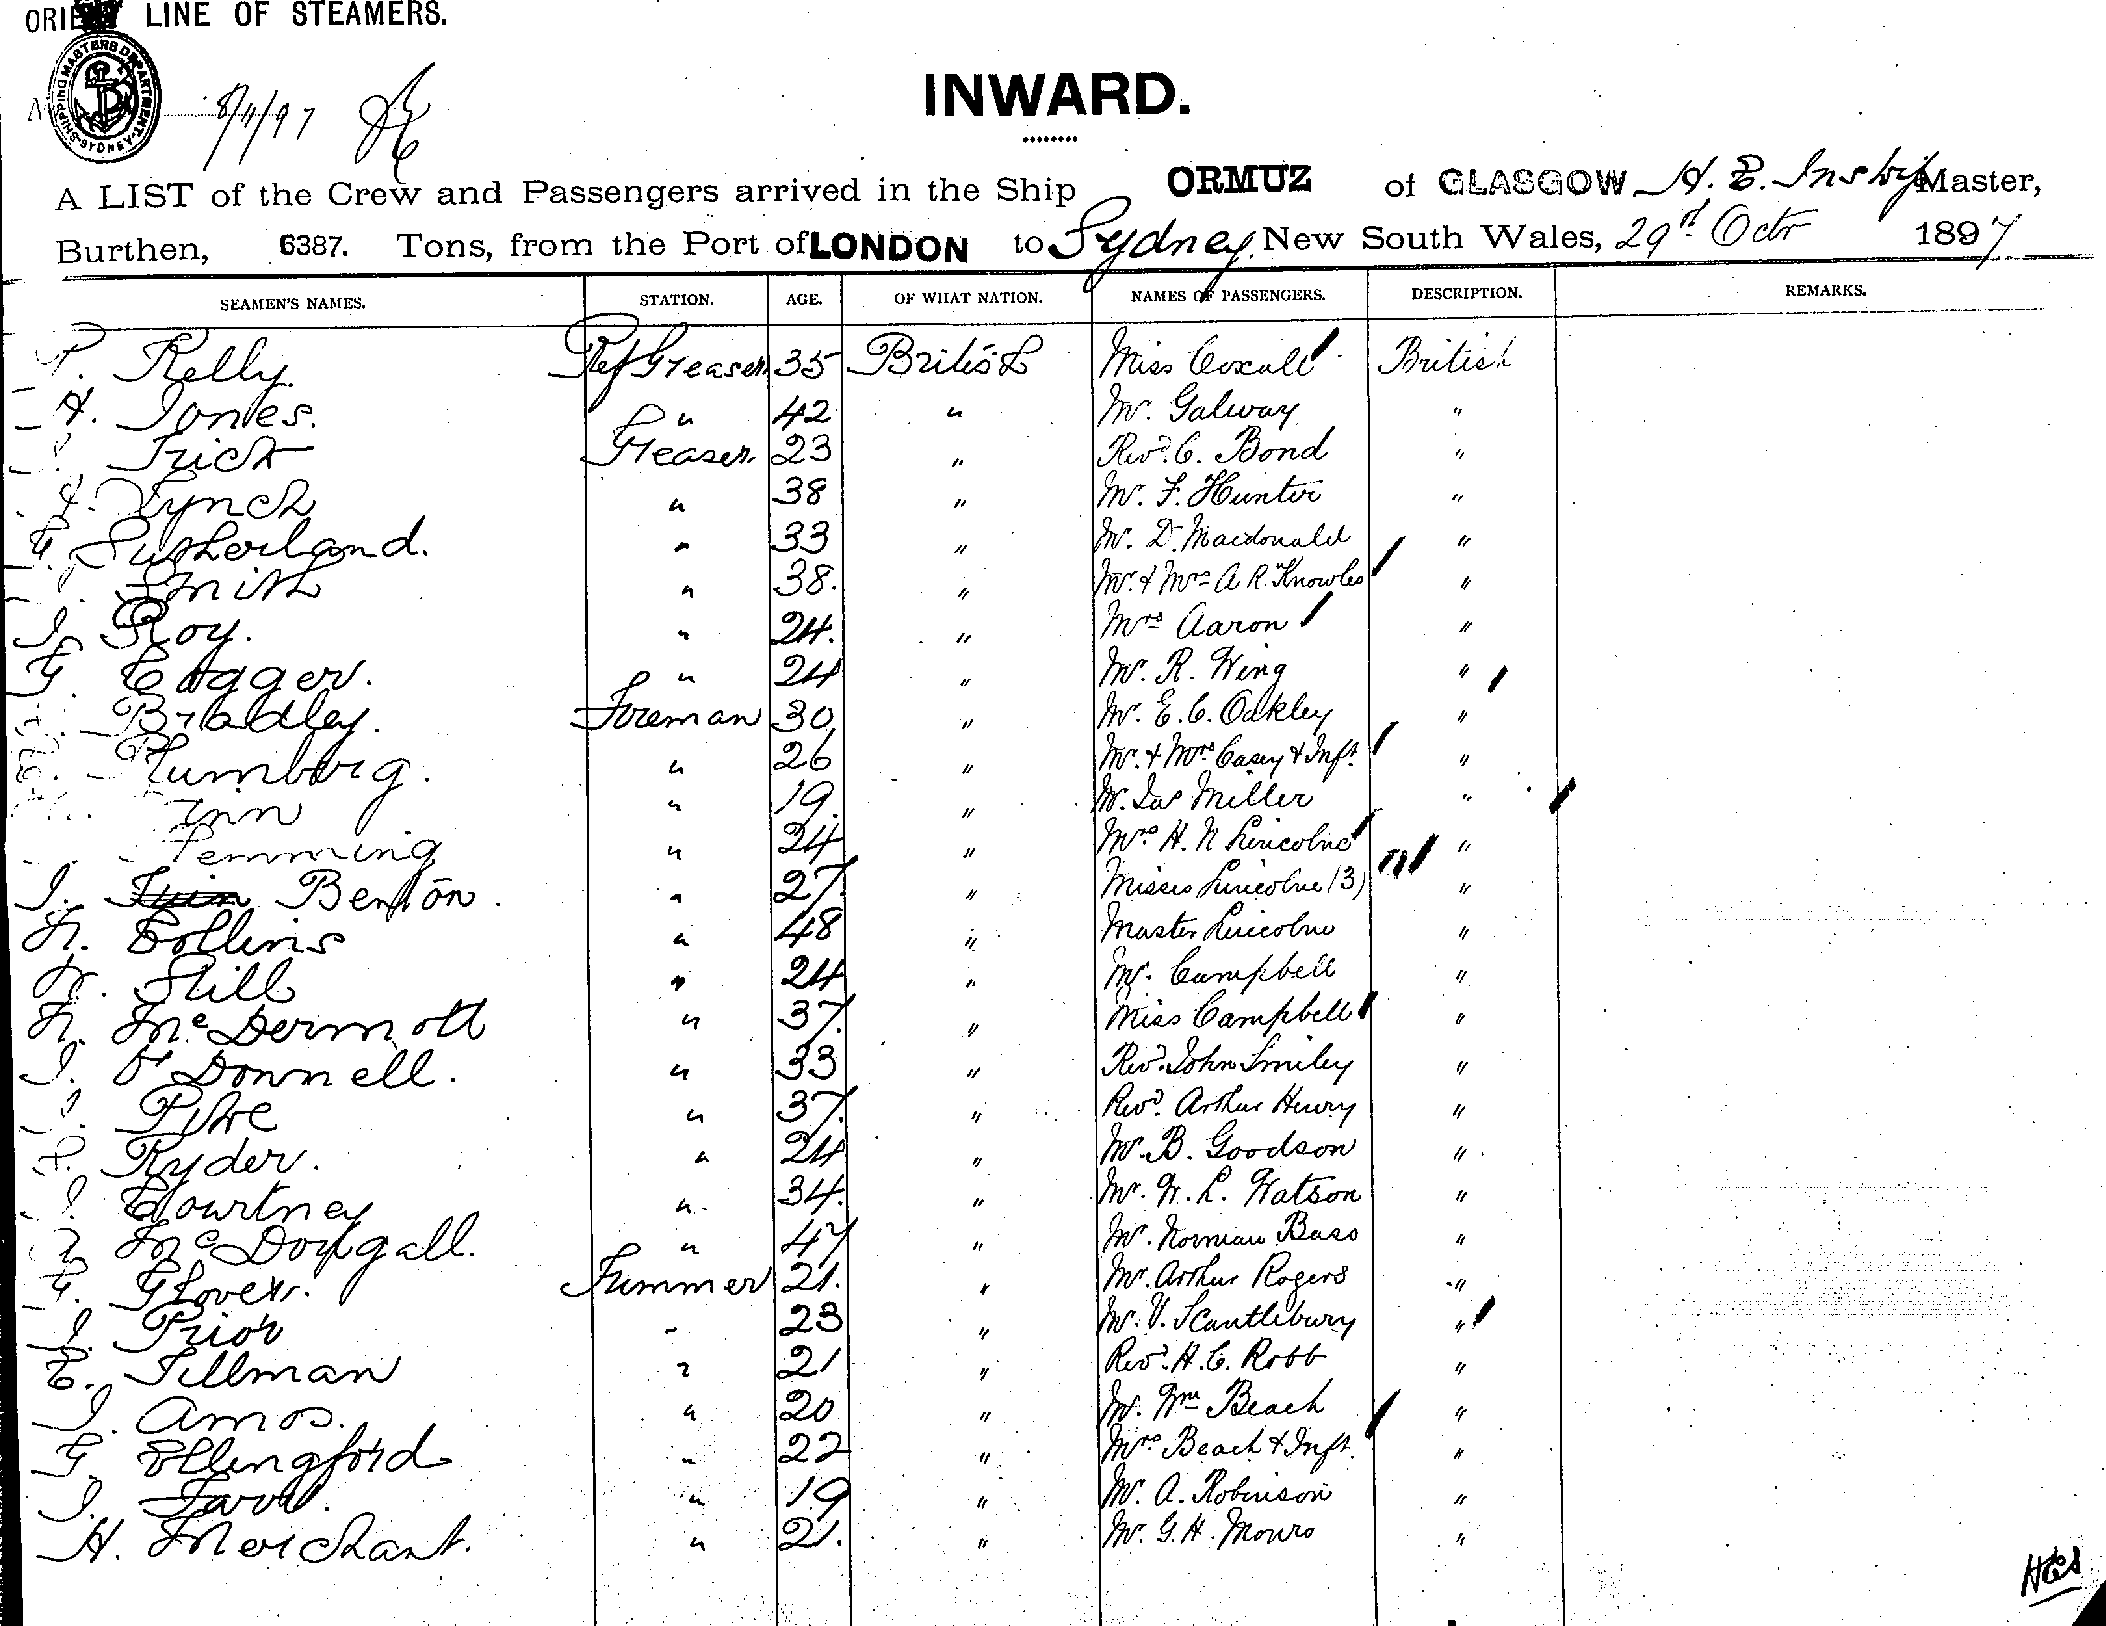 ORIENT LINE OF STEAMERS.
SHIPPING MASTERS DEPARTMENT SYDNEY
8/11/97
INWARD.
A LIST of the Crew and Passengers arrived in the Ship ORMUZ of GLASGOW H. E. Inskip Master,
Burthen, 6387. Tons, from the Port of LONDON to Sydney, New South Wales, 29th Octr 1897
SEAMEN'S NAMES. STATION. AGE. OF WHAT NATION. NAMES OF PASSENGERS. DESCRIPTION. REMARKS.
P. Kelly Ref Greaser 35 British Miss Coxall British
H. Jones. " 42 " Mr. Galway "
Greaser. 23 " Revd. C. Bond "
J. Lynch " 38 " Mr. F. Hunter "
G. Sutherland. " 33 " Mr. D. Macdonald "
Smith " 38. " Mr. & Mrs A. R. Knowles "
J. Roy. " 24. " Mrs Aaron "
G. Cogger. " 24 " Mr. R. Wing "
Bradley. Fireman 30 " Mr. E. C. Oakley "
" 26 " Mr. & Mrs Casey & Inft. "
" 19. " Mr. Jas Miller "
" 24 " Mrs H. N Lincolne "
J. Benton. " 27. " Misses Lincolne (3) "
H. Collins " 48 " Master Lincolne "
W. Still " 24 " Mr. Campbell "
H. McDermott " 37. " Miss Campbell "
J. O'Donnell. " 33 " Revd. John Smiley "
J. Pike " 37. " Revd. Arthur Henry "
P. Ryder. " 24 " Mr. B. Goodson "
J. Courtney " 34. " Mr. W. L. Watson "
McDougall. " 47 " Mr. Norman Bass "
G. Glover. Trimmer 21. " Mr. Arthur Rogers "
J. Prior " 23 " Mr. V. Scantlebury "
E. Tillman " 21 " Revd. H. C. Robb "
J. Amos. " 20 " Mr. Wm Beach "
G. Ellingford " 22 " Mrs Beach & Inft. "
J. " 19 " Mr. A. Robinson "
H. Merchant. " 21. " Mr. G. H. Monro "